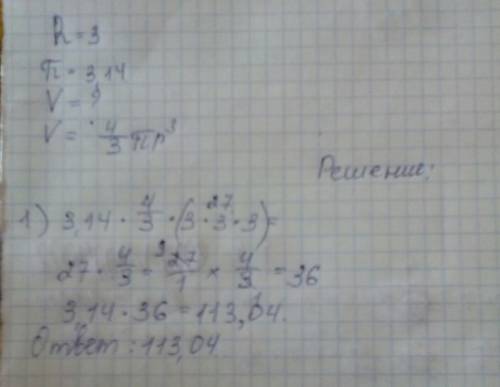 R = 3
π = 3,14
V = ?
V = 4/3 πr³
Решение:
1) 3,14 · 4/3 · (3 · 3 · 3) = 27
27 · 4/3 = 27/1 × 4/3 = 36
3,14 · 36 = 113,04.
Ответ: 113,04